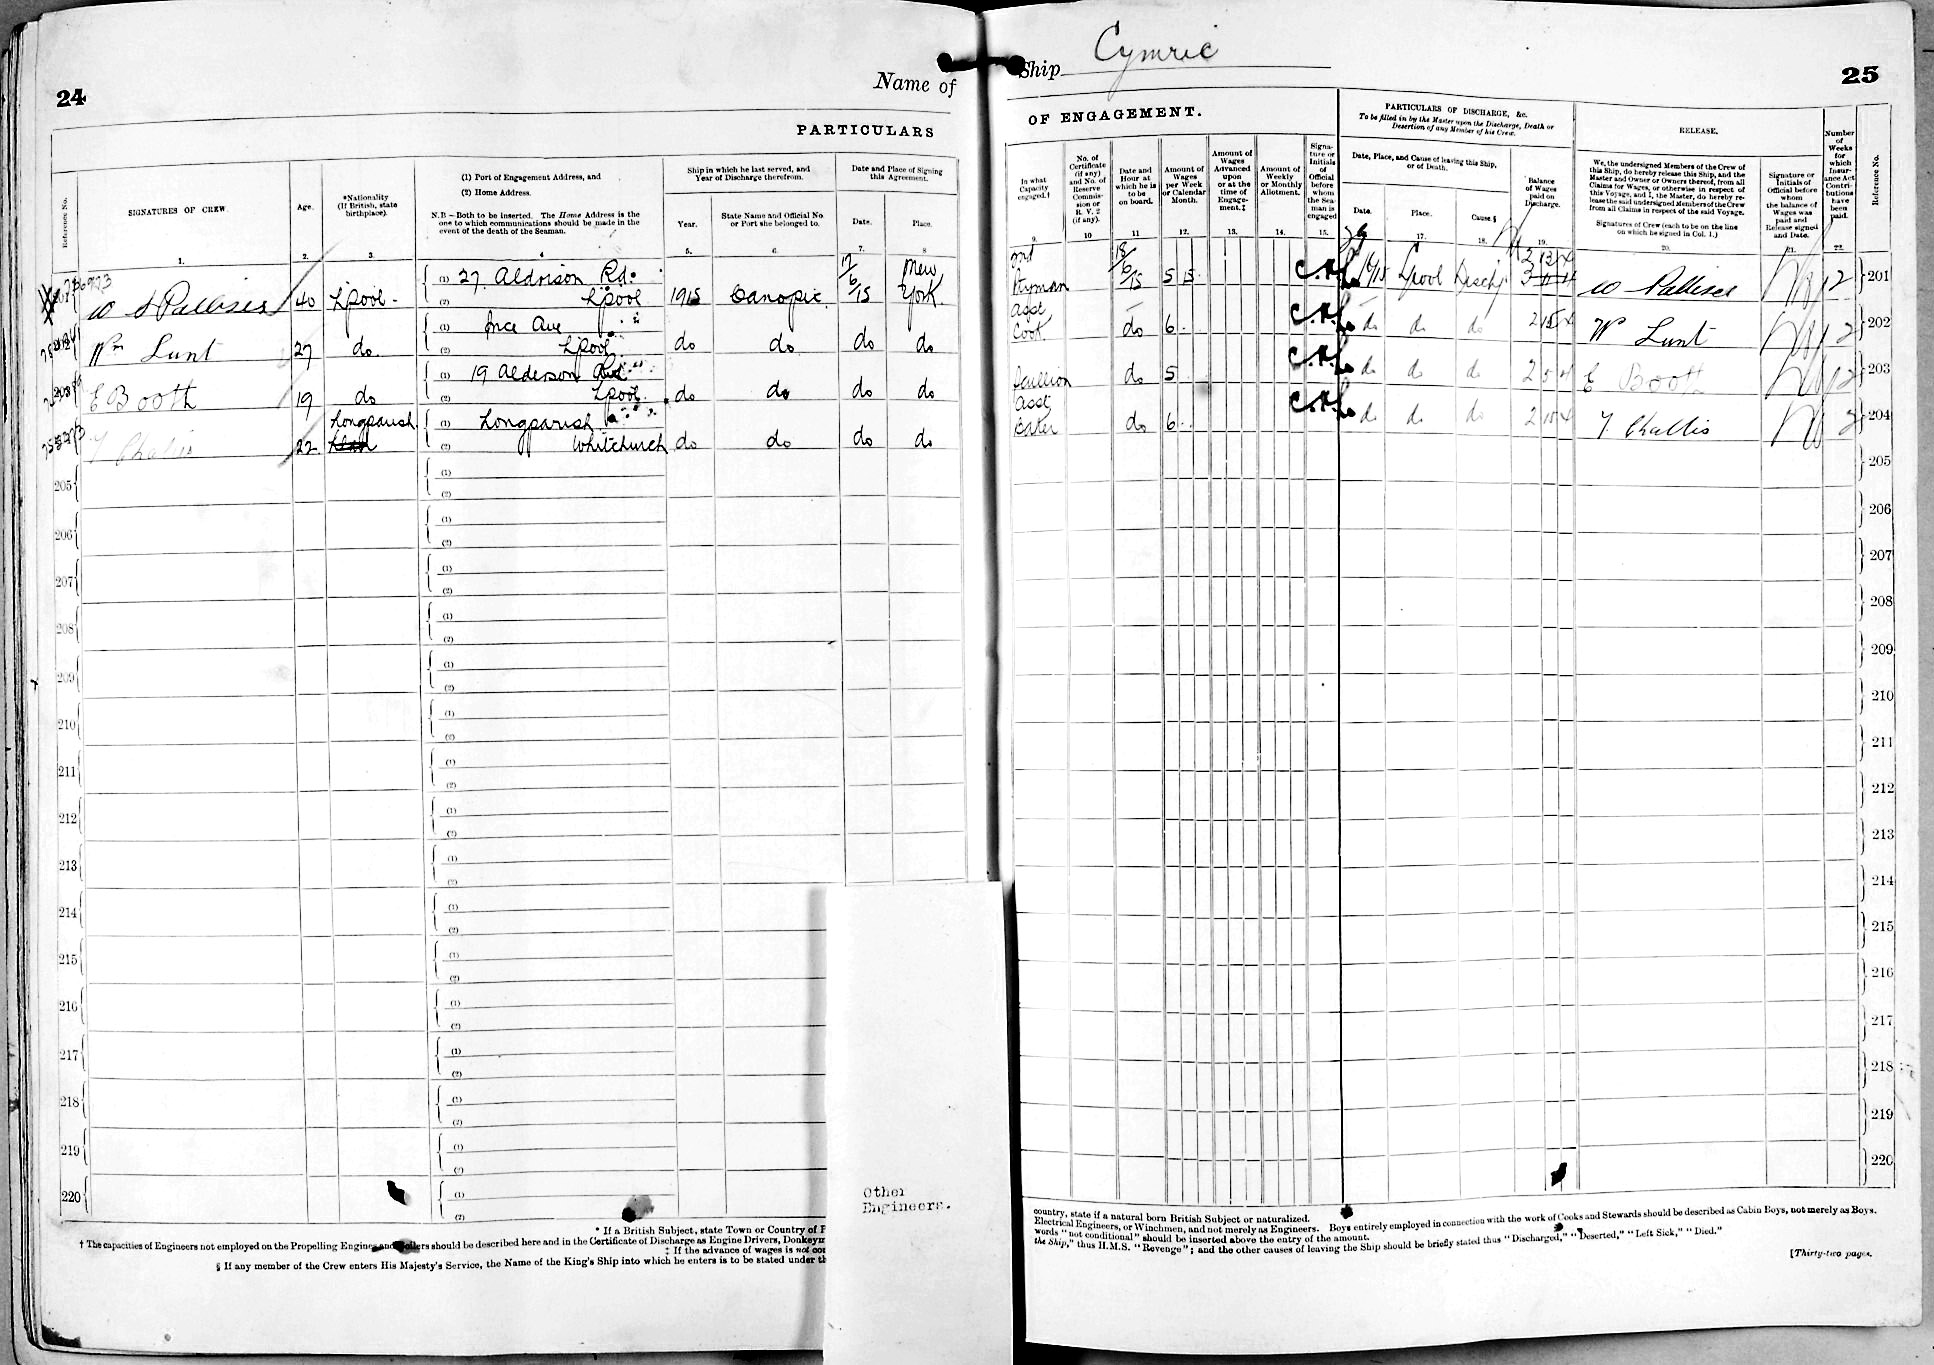 24
Name of
Ship Cymric
25
PARTICULARS
OF ENGAGEMENT.
PARTICULARS OF DISCHARGE, &c.
To be filled in by the Master upon the Discharge, Death or
Desertion of any Member of his Crew.
RELEASE.
Reference No.
SIGNATURES OF CREW.
Age.
*Nationality
(If British, state
birthplace).
(1) Port of Engagement Address, and
(2) Home Address.
N.B—Both to be inserted. The Home Address is the
one to which communications should be made in the
event of the death of the Seaman.
Ship in which he last served, and
Year of Discharge therefrom.
Year.
State Name and Official No
or Port she belonged to.
Date and Place of Signing
this Agreement.
Date.
Place.
In what
Capacity
engaged.†
No. of
Certificate
(if any)
and No. of
Reserve
Commis-
sion or
R. V. 2
(if any).
Date and
Hour at
which he is
to be
on board.
Amount of
Wages
per Week
or Calendar
Month.
Amount of
Wages
Advanced
upon
or at the
time of
Engage-
ment.‡
Amount of
Weekly
or Monthly
Allotment.
Signa-
ture or
Initials
of
Official
before
whom
the Sea-
man is
engaged
Date, Place, and Cause of leaving this Ship,
or of Death.
Date.
Place.
Cause.§
Balance
of Wages
paid on
Discharge.
We, the undersigned Members of the Crew of
this Ship, do hereby release this Ship, and the
Master and Owner or Owners thereof, from all
Claims for Wages, or otherwise in respect of
this Voyage, and I, the Master, do hereby re-
lease the said undersigned Members of the Crew
from all Claims in respect of the said Voyage.
Signatures of Crew (each to be on the line
on which he signed in Col. 1.)
Signature or
Initials of
Official before
whom
the balance of
Wages was
paid and
Release signed
and Date.
Number
of
Weeks
for
which
Insur-
ance Act
Contri-
butions
have
been
paid.
Reference No.
1. 2. 3. 4 5. 6. 7. 8
9. 10 11 12. 13. 14. 15. 17. 18. 19. 20. 21. 22
40 L'pool (1) 27 Aldrison Rd. (2) L'pool 1915 Canopic 17/6/15 New York
18/6/15 5 15 L'pool Disch 201
Wm Lunt 27 do (1) (2) L'pool do do do do
Asst Cook do 6 do do do Wm Lunt 202
E Booth 19 do (1) 19 Alderson Rd (2) L'pool do do do do
Scullion do 5 do do do E Booth 203
Challis 22 Longparish (1) Longparish (2) Whitchurch do do do do
Asst do 6 do do do Challis 204
205 (1) (2) 205
206 (1) (2) 206
207 (1) (2) 207
208 (1) (2) 208
209 (1) (2) 209
210 (1) (2) 210
211 (1) (2) 211
212 (1) (2) 212
213 (1) (2) 213
214 (1) (2) 214
215 (1) (2) 215
216 (1) (2) 216
217 (1) (2) 217
218 (1) (2) 218
219 (1) (2) 219
220 (1) (2) 220
Other
Engineers.
* If a British Subject, state Town or Country of
† The capacities of Engineers not employed on the Propelling Engines and Boilers should be described here and in the Certificate of Discharge as Engine Drivers,
‡ If the advance of wages is not
§ If any member of the Crew enters His Majesty's Service, the Name of the King's Ship into which he enters is to be stated under
country, state if a natural born British Subject or naturalized.
Electrical Engineers, or Winchmen, and not merely as Engineers. Boys entirely employed in connection with the work of Cooks and Stewards should be described as Cabin Boys, not merely as Boys.
words "not conditional" should be inserted above the entry of the amount.
the Ship," thus H.M.S. "Revenge"; and the other causes of leaving the Ship should be briefly stated thus "Discharged," "Deserted," "Left Sick," "Died."
[Thirty-two pages.